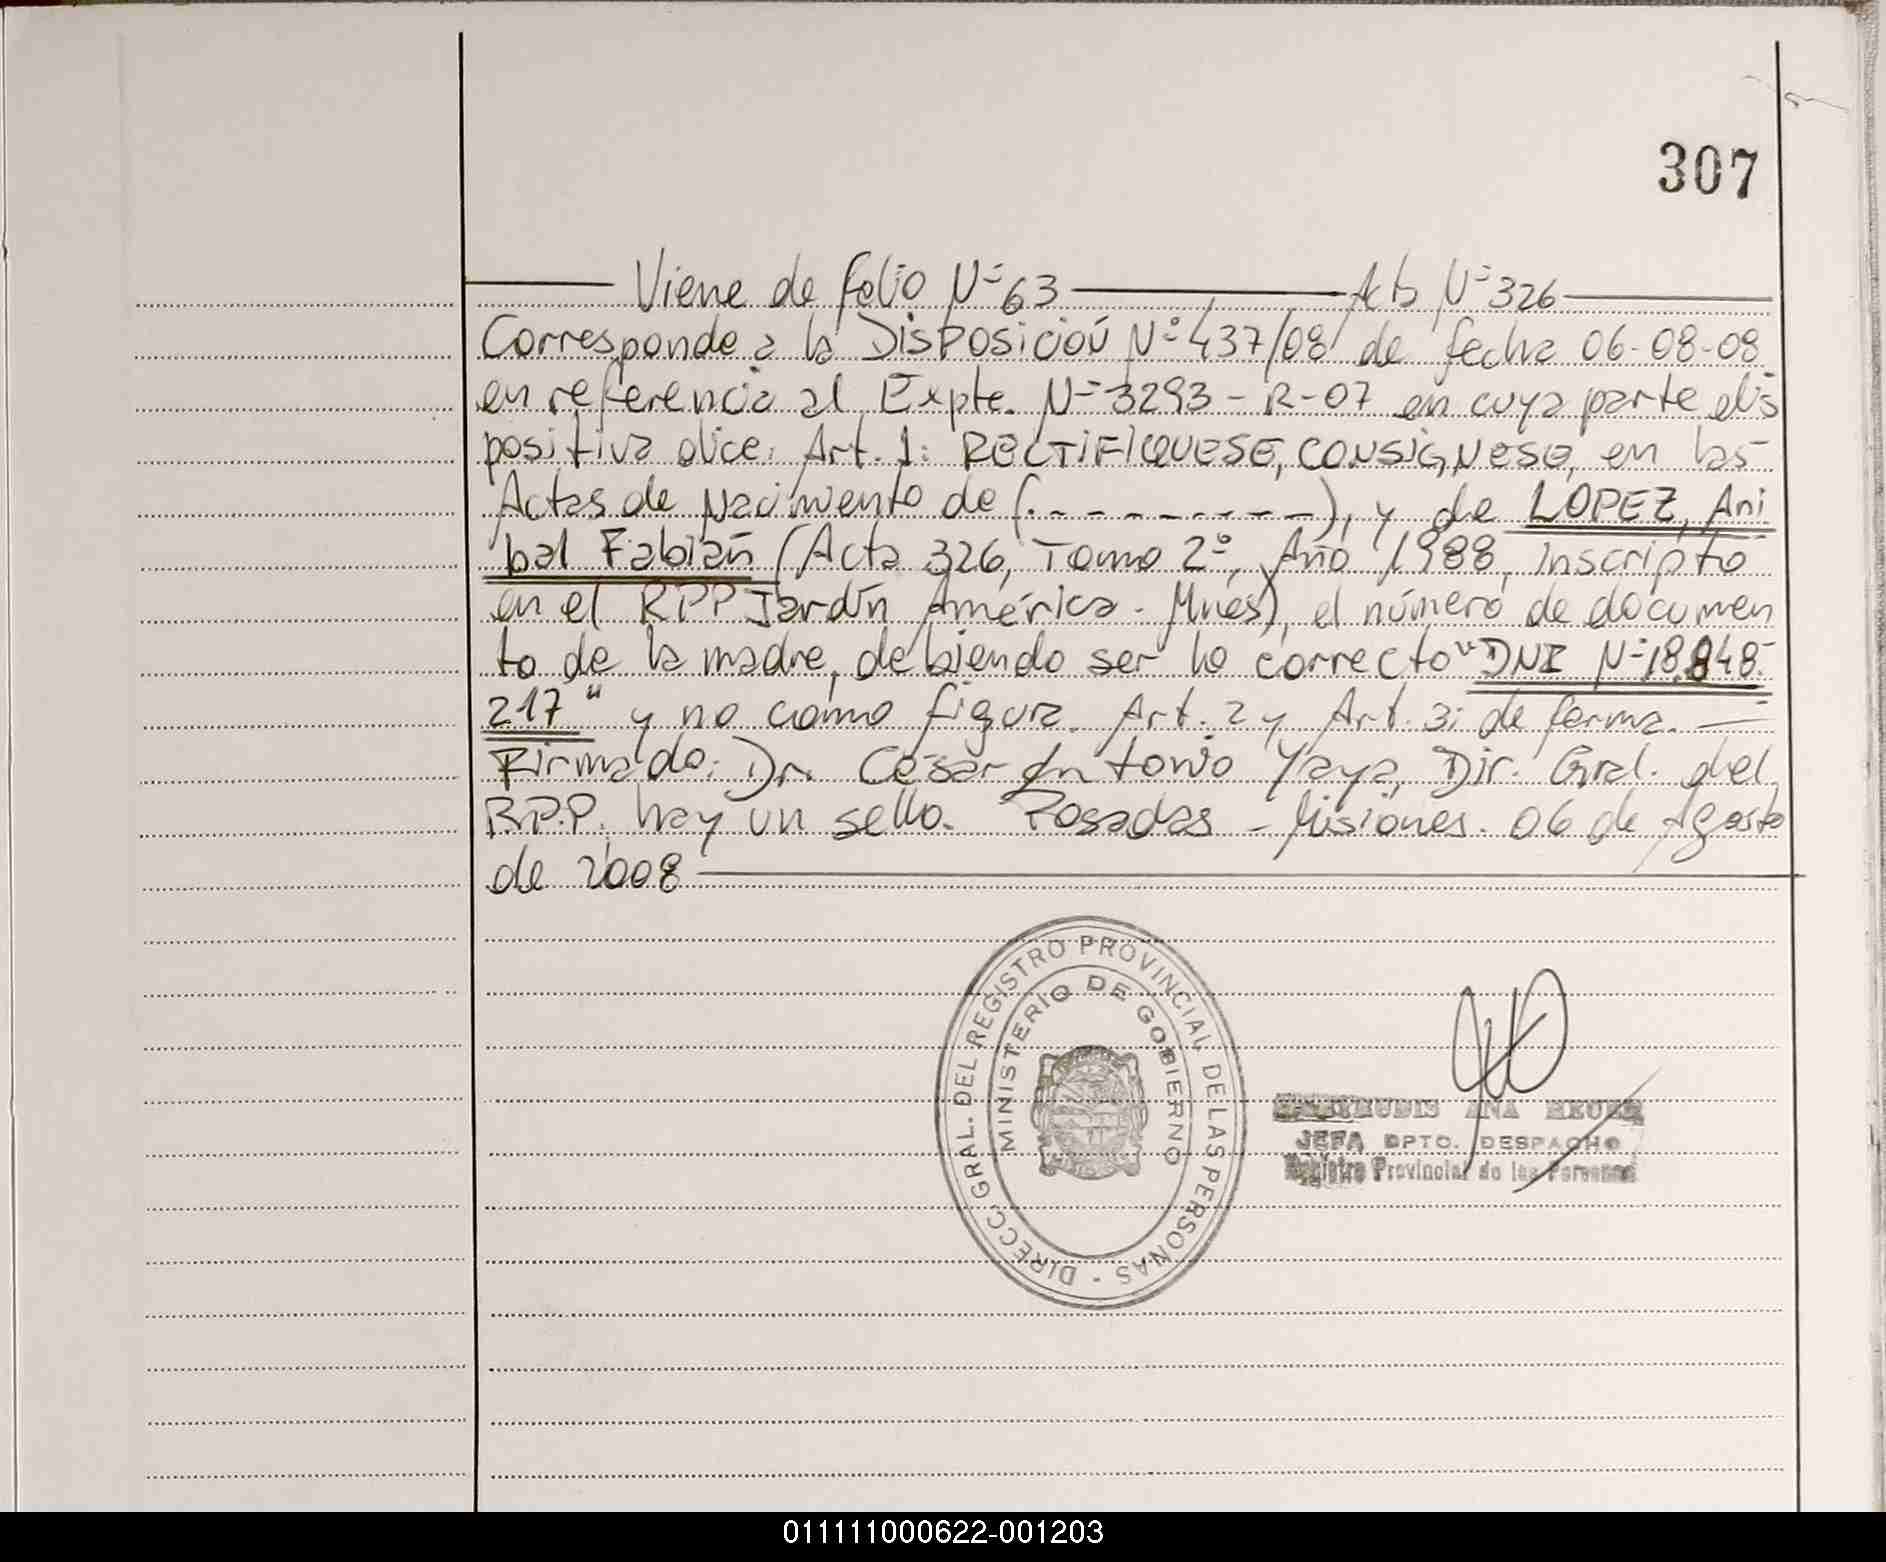 307
Viene de folio Nº 63 Acta Nº 326
Corresponde a la Disposición Nº 437/08 de fecha 06-08-08
en referencia al Expte. Nº 3293-R-07 en cuya parte dis
positiva dice: Art. 1: RECTIFIQUESE, CONSIGNESE, en las
Actas de Nacimiento de (. - - - - - - - - -), y de LOPEZ, Ani
bal Fabián (Acta 326, Tomo 2º, Año 1988, inscripto
en el RPP Jardín América - Mnes), el número de documen
to de la madre, debiendo ser lo correcto "DNI Nº 18.848.
217" y no como figura. Art. 2 y Art. 3: de forma.
Firmado: Dr. César Antonio Yaya, Dir. Gral. del
R.P.P. hay un sello. Posadas - Misiones. 06 de Agosto
de 2008
DIRECC. GRAL. DEL REGISTRO PROVINCIAL DE LAS PERSONAS -
MINISTERIO DE GOBIERNO
ANA
JEFA DPTO. DESPACHO
Registro Provincial de las Personas
011111000622-001203